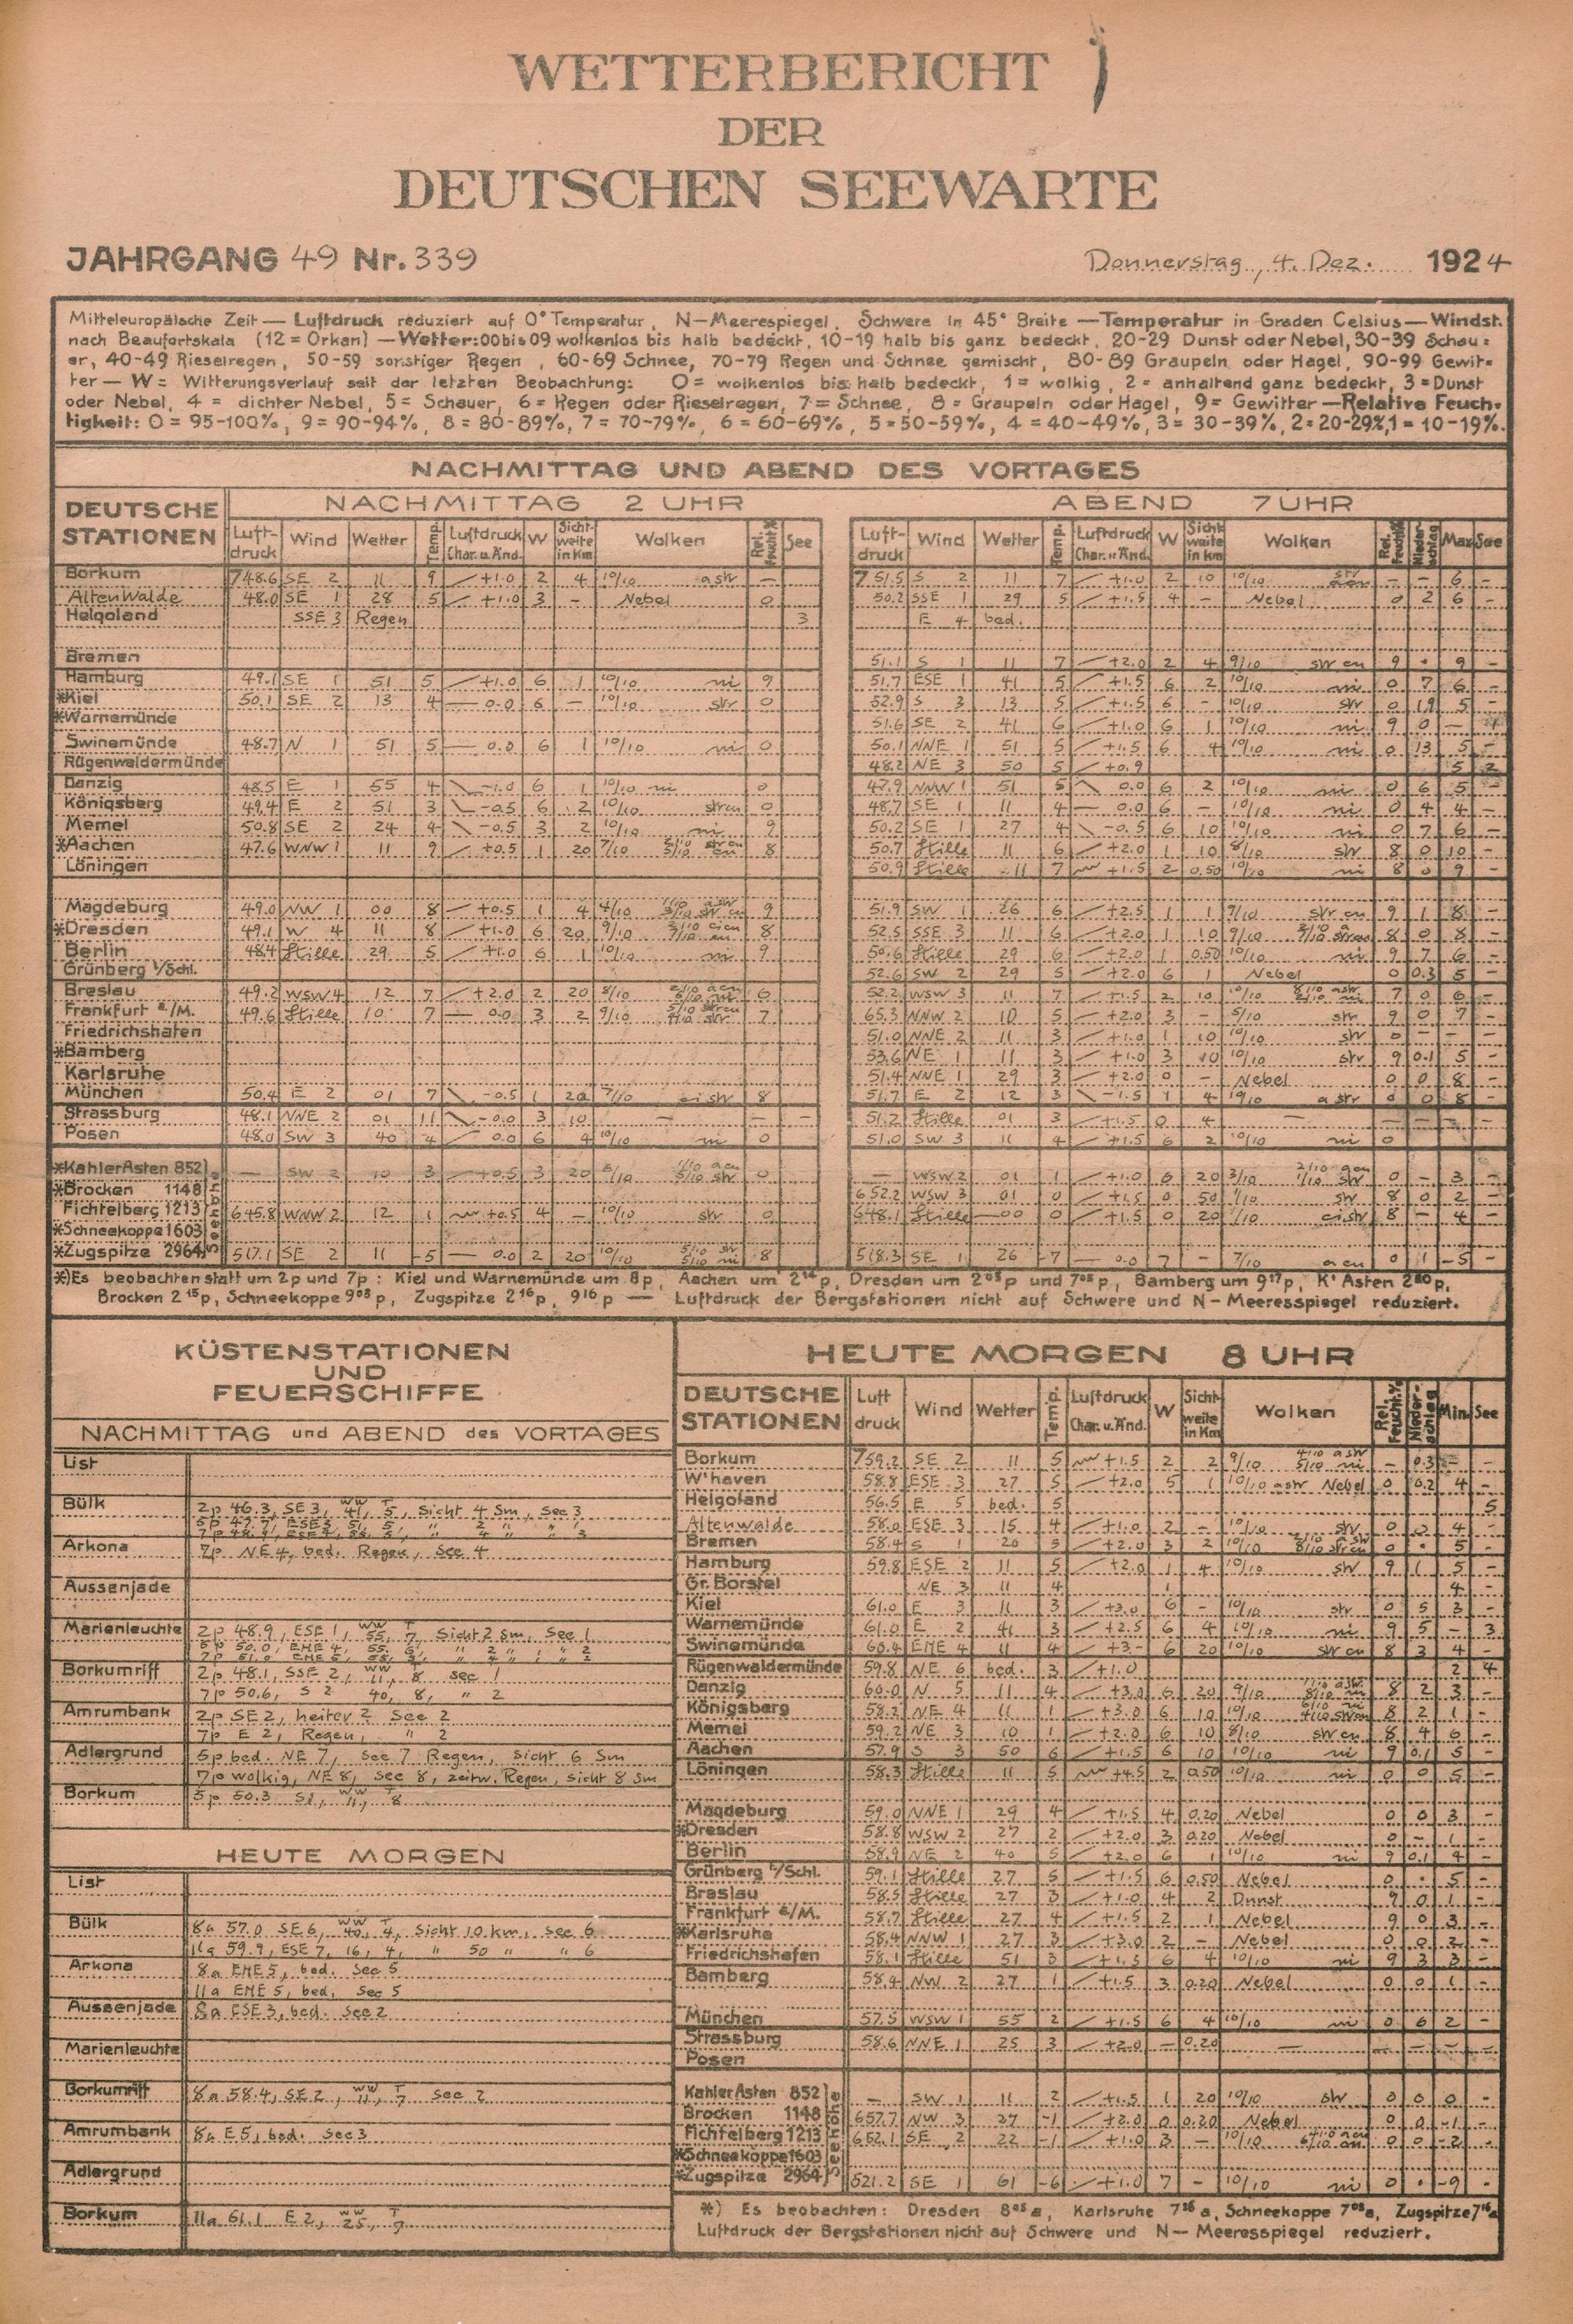 WETTERBERICHT
DER
DEUTSCHEN SEEWARTE
JAHRGANG 49 Nr. 339 Donnerstag, 4. Dez. 1924
Mitteleuropäische Zeit — Luftdruck reduziert auf 0° Temperatur, N—Meerespiegel, Schwere in 45° Breite —Temperatur in Graden Celsius—Windst.
nach Beaufortskala (12 = Orkan) —Wetter: 00 bis 09 wolkenlos bis halb bedeckt, 10-19 halb bis ganz bedeckt, 20-29 Dunst oder Nebel, 30-39 Schau=
er, 40-49 Rieselregen, 50-59 sonstiger Regen, 60-69 Schnee, 70-79 Regen und Schnee gemischt, 80-89 Graupeln oder Hagel, 90-99 Gewit-
ter — W = Witterungsverlauf seit der letzten Beobachtung: 0 = wolkenlos bis halb bedeckt, 1 = wolkig, 2 = anhaltend ganz bedeckt, 3 = Dunst
oder Nebel, 4 = dichter Nebel, 5 = Schauer, 6 = Regen oder Rieselregen, 7 = Schnee, 8 = Graupeln oder Hagel, 9 = Gewitter —Relative Feuch-
tigkeit: 0 = 95-100%, 9 = 90-94%, 8 = 80-89%, 7 = 70-79%, 6 = 60-69%, 5 = 50-59%, 4 = 40-49%, 3 = 30-39%, 2 = 20-29%, 1 = 10-19%.
NACHMITTAG UND ABEND DES VORTAGES
DEUTSCHE STATIONEN NACHMITTAG 2 UHR ABEND 7 UHR
Luft-druck Wind Wetter Temp. Luftdruck Char. u. Änd. W Sicht-weite in km Wolken Rel. Feucht.% See Luft-druck Wind Wetter Temp. Luftdruck Char. u. Änd. W Sicht-weite in km Wolken Rel. Feucht.% Nieder-schlag Max See
Borkum 748.6 SE 2 11 9 +1.0 2 4 10/10 astr — 751.5 S 2 11 7 +1.0 2 10 10/10 — — 6 -
Altenwalde 48.0 SE 1 28 5 +1.0 3 - Nebel 0 50.2 SSE 1 29 5 +1.5 4 - Nebel 0 2 6 -
Helgoland SSE 3 Regen 3 E 4 bed.
Bremen 51.1 S 1 11 7 +2.0 2 4 9/10 strcu 9 • 9 -
Hamburg 49.1 SE 1 51 5 +1.0 6 1 10/10 ni 9 51.7 ESE 1 41 5 +1.5 6 2 10/10 ni 0 7 6 -
*Kiel 50.1 SE 2 13 4 — 0.0 6 — 10/10 str 0 52.9 S 3 13 5 +1.5 6 - 10/10 str 0 19 5 -
*Warnemünde 51.6 SE 2 41 6 +1.0 6 1 10/10 ni 9 0 — 1
Swinemünde 48.7 N 1 51 5 — 0.0 6 1 10/10 ni 0 50.1 NNE 1 51 5 +1.5 6 4 10/10 ni 0 13 5 -
Rügenwaldermünde 48.2 NE 3 50 5 +0.9 5 2
Danzig 48.5 E 1 55 4 -1.0 6 1 10/10 ni 0 47.9 NNW 1 51 5 0.0 6 2 10/10 ni 0 6 5 -
Königsberg 49.4 E 2 51 3 -0.5 6 2 10/10 strcu 0 48.7 SE 1 11 4 — 0.0 6 - 10/10 ni 0 4 4 -
Memel 50.8 SE 2 24 4 -0.5 3 2 10/10 ni 9 50.2 SE 1 27 4 -0.5 6 10 10/10 ni 0 7 6 -
*Aachen 47.6 WNW 1 11 9 +0.5 1 20 7/10 8 50.7 Stille 11 6 +2.0 1 10 8/10 str 8 0 10 -
Löningen 50.9 Stille 11 7 +1.5 2 0.50 10/10 ni 8 0 9 -
Magdeburg 49.0 NW 1 00 8 +0.5 1 4 4/10 9 51.9 SW 1 26 6 +2.5 1 1 7/10 strcu 9 1 8 -
*Dresden 49.1 W 4 11 8 +1.0 6 20 9/10 8 52.5 SSE 3 11 6 +2.0 1 10 9/10 8 0 8 -
Berlin 48.4 Stille 29 5 +1.0 6 1 10/10 ni 9 50.6 Stille 29 6 +2.0 1 0.50 10/10 ni 9 7 6 -
Grünberg i/Schl. 52.6 SW 2 29 5 +2.0 6 1 Nebel 0 0.3 5 -
Breslau 49.2 WSW 4 12 7 +2.0 2 20 8/10 6 52.2 WSW 3 11 7 +1.5 2 10 10/10 7 0 6 -
Frankfurt a/M. 49.6 Stille 10 7 — 0.0 3 2 9/10 7 65.3 NNW 2 10 5 +2.0 3 - 5/10 str 9 0 7 -
Friedrichshafen 51.0 NNE 2 11 3 +1.0 1 10 10/10 str 0 — — -
*Bamberg 53.6 NE 1 11 3 +1.0 3 10 10/10 str 9 0.1 5 -
Karlsruhe 51.4 NNE 1 29 3 +2.0 0 - Nebel 0 0 8 -
München 50.4 E 2 01 7 -0.5 1 20 7/10 cistr 8 51.7 E 2 12 3 -1.5 1 4 10/10 astr 0 0 8 -
Strassburg 48.1 NNE 2 01 11 -0.0 3 10 — — — 51.2 Stille 01 3 +1.5 0 4 — — — — —
Posen 48.0 SW 3 40 4 0.0 6 4 10/10 ni 0 51.0 SW 3 11 4 +1.5 6 2 10/10 ni 0
Seehöhe
*Kahler Asten 852 — SW 2 10 3 +0.5 3 20 6/10 0 — WSW 2 01 1 +1.0 6 20 3/10 0 - 3 -
*Brocken 1148 652.2 WSW 3 01 0 +1.5 0 50 1/10 str 8 0 2 -
Fichtelberg 1213 645.8 WNW 2 12 1 +0.5 4 — 10/10 str 0 648.1 Stille 00 0 +1.5 0 20 1/10 cistr 8 — 4 -
*Schneekoppe 1603
*Zugspitze 2964 517.1 SE 2 11 -5 — 0.0 2 20 10/10 8 518.3 SE 1 26 -7 — 0.0 7 - 7/10 acu 0 1 -5 -
*) Es beobachten statt um 2p und 7p : Kiel und Warnemünde um 8p, Aachen um 2¹⁴p, Dresden um 2⁰⁵p und 7⁰⁵p, Bamberg um 9¹⁷p, K' Asten 2²⁰p,
Brocken 2¹⁵p, Schneekoppe 9⁰⁸p, Zugspitze 2¹⁶p, 9¹⁶p — Luftdruck der Bergstationen nicht auf Schwere und N—Meeresspiegel reduziert.
KÜSTENSTATIONEN
UND
FEUERSCHIFFE
NACHMITTAG und ABEND des VORTAGES
List
Bülk 2p 46.3, SE 3, WW 41, T 5, Sicht 4 Sm, See 3
5p 47.7, ESE 3, 51, 5, " 2 " " 1
Arkona 7p NE 4, bed. Regen, See 4
Aussenjade
Marienleuchte 2p 48.9, ESE 1, WW 55, T 7, Sicht 2 Sm, See 1
5p 50.0, ENE 4, 55, 6, " 2 " " 2
Borkumriff 2p 48.1, SSE 2, WW 11, 8 See 1
7p 50.6, S 2 40, 8, " 2
Amrumbank 2p SE 2, heiter 2 See 2
7p E 2, Regen, " 2
Adlergrund 5p bed. NE 7, See 7 Regen, Sicht 6 Sm
7p wolkig, NE 8, See 8, zeitw. Regen, Sicht 8 Sm
Borkum 5p 50.3 S1, 11, 8
HEUTE MORGEN
List
Bülk 8a 57.0 SE 6, WW 40, T 4, Sicht 10 km, See 6
11a 59.9, ESE 7, 16, 4, " 50 " " 6
Arkona 8a ENE 5, bed. See 5
11a ENE 5, bed, See 5
Aussenjade 8a ESE 3, bed. See 2
Marienleuchte
Borkumriff 8a 58.4, SE 2, WW 11, T 7 See 2
Amrumbank 8a E 5, bed. See 3
Adlergrund
Borkum 11a 61.1 E 2, WW 25, T 7
HEUTE MORGEN 8 UHR
DEUTSCHE STATIONEN Luft druck Wind Wetter Temp. Luftdruck Char. u. Änd. W Sicht-weite in Km Wolken Rel. Feucht.% Nieder-schlag Min. See
Borkum 759.2 SE 2 11 5 +1.5 2 2 9/10 4/10 astr 5/10 ni — 0.3 — -
W'haven 58.8 ESE 3 27 5 +2.0 5 1 10/10 astr Nebel 0 0.2 4 -
Helgoland 56.5 E 5 bed. 5 5
Altenwalde 58.0 ESE 3 15 4 +1.0 2 - 10/10 str 0 0 4 -
Bremen 58.4 S 1 20 5 +2.0 3 2 10/10 0 • 5 -
Hamburg 59.8 ESE 2 11 5 +2.0 1 4 10/10 str 9 1 5 -
Gr. Borstel NE 3 11 4 1 4 -
Kiel 61.0 E 3 11 3 +3.0 6 - 10/10 str 0 5 3 -
Warnemünde 61.0 E 2 41 3 +2.5 6 4 10/10 ni 9 5 — 3
Swinemünde 60.4 ENE 4 11 4 +3- 6 20 10/10 strcu 8 3 4 -
Rügenwaldermünde 59.8 NE 6 bed. 3 +1.0 2 4
Danzig 60.0 N 5 11 4 +3.0 6 20 9/10 8 2 3 -
Königsberg 58.2 NE 4 11 1 +3.0 6 10 10/10 8 2 1 -
Memel 59.2 NE 3 10 1 +2.0 6 10 8/10 strcu 8 4 6 -
Aachen 57.9 S 3 50 6 +1.5 6 10 10/10 ni 9 0.1 5 -
Löningen 58.3 Stille 11 5 +4.5 2 0.50 10/10 ni 0 0 5 -
Magdeburg 59.0 NNE 1 29 4 +1.5 4 0.20 Nebel 0 0 3 -
*Dresden 58.8 WSW 2 27 2 +2.0 3 0.20 Nebel 0 — 1 -
Berlin 58.9 NE 2 40 5 +2.0 6 1 10/10 ni 9 0.1 4 -
Grünberg i/Schl. 59.1 Stille 27 5 +1.5 6 0.50 Nebel 0 • 5 -
Breslau 58.5 Stille 27 3 +1.0 4 2 Dunst 9 0 1 -
Frankfurt a/M. 58.7 Stille 27 4 +1.5 2 1 Nebel 9 0 3 -
*Karlsruhe 58.4 NNW 1 27 3 +3.0 2 - Nebel 0 0 2 -
Friedrichshafen 58.1 Stille 51 3 +1.5 6 4 10/10 ni 9 3 3 -
Bamberg 58.4 NW 2 27 1 +1.5 3 0.20 Nebel 0 0 1 -
München 57.5 WSW 1 55 2 +1.5 6 4 10/10 ni 0 6 2 -
Strassburg 58.6 NNE 1 25 3 +2.0 — 0.20 — — — — —
Posen
Seehöhe
Kahler Asten 852 — SW 1 11 2 +1.5 1 20 10/10 str 0 0 0 -
Brocken 1148 657.7 NW 3 27 -1 +2.0 0 0.20 Nebel 0 0 -1 -
Fichtelberg 1213 652.1 SE 2 22 -1 +1.0 3 — 10/10 0 0 -2 -
*Schneekoppe 1603
*Zugspitze 2964 521.2 SE 1 61 -6 +1.0 7 - 10/10 ni 0 • -9 -
*) Es beobachten: Dresden 8⁰⁵a, Karlsruhe 7²⁶a, Schneekoppe 7⁰⁸a, Zugspitze 7¹⁶a
Luftdruck der Bergstationen nicht auf Schwere und N—Meeresspiegel reduziert.